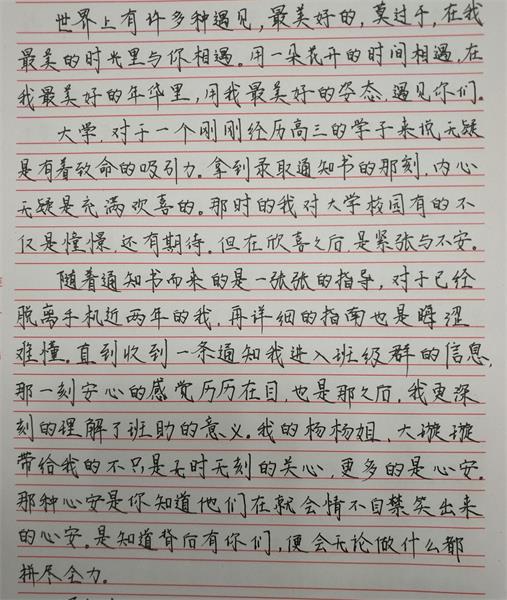 世界上有许多种遇见,最美好的,莫过于,在我
最美的时光里与你相遇。用一朵花开的时间相遇,在
我最美好的年华里,用我最美好的姿态,遇见你们。
大学,对于一个刚刚经历高三的学子来说无疑
是有着致命的吸引力。拿到录取通知书的那刻,内心
无疑是充满欢喜的。那时的我对大学校园有的不
仅是憧憬,还有期待。但在欣喜之后,是紧张与不安。
随着通知书而来的是一张张的指导,对于已经
脱离手机近两年的我,再详细的指南也是晦涩
难懂。直到收到一条通知我进入班级群的信息,
那一刻安心的感觉历历在目,也是那之后,我更深
刻的理解了班助的意义。我的杨杨姐,大璇璇
带给我的不只是无时无刻的关心,更多的是心安。
那种心安是你知道他们在就会情不自禁笑出来
的心安。是知道背后有你们,便会无论做什么都
拼尽全力。